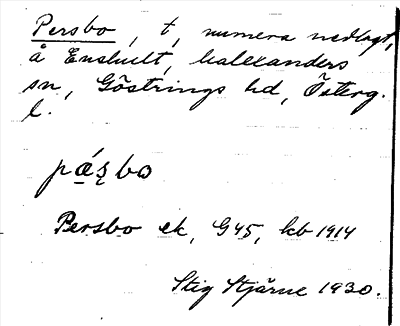 Persbo, t, numera nedlagt,
å Enshult, Kalexanders
sn, Göstrings hd, Österg.
l.
pǽʂbo
Persbo ek, G45, kb 1914
Stig Stjärne 1930.